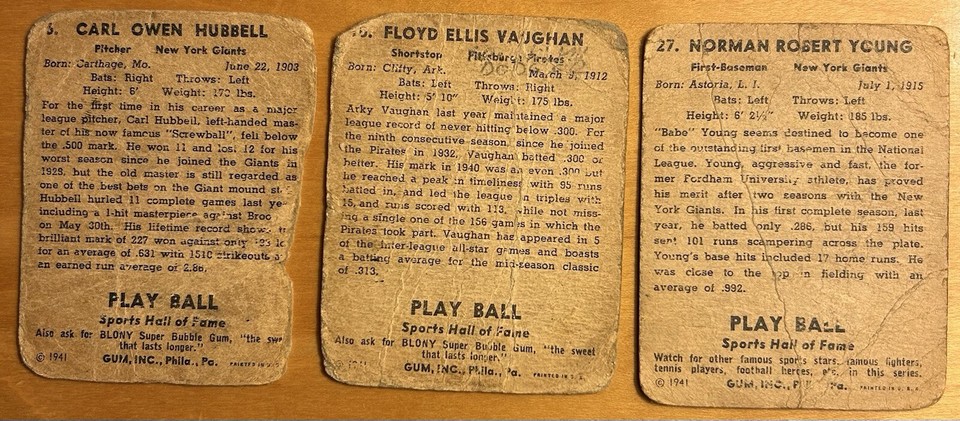 6. CARL OWEN HUBBELL
Pitcher New York Giants
Born: Carthage, Mo. June 22, 1903
Bats: Right Throws: Left
Height: 6' Weight: 172 lbs.
For the first time in his career as a major
league pitcher, Carl Hubbell, left-handed mas-
ter of his now famous "Screwball", fell below
the .500 mark. He won 11 and lost 12 for his
worst season since he joined the Giants in
1928, but the old master is still regarded as
one of the best bets on the Giant mound
Hubbell hurled 11 complete games last
including a 1-hit masterpiece against
on May 30th. His lifetime record shows
brilliant mark of 227 won against only
for an average of .631 with 1510 strikeouts
an earned run average of 2.86.
PLAY BALL
Sports Hall of Fame
Also ask for BLONY Super Bubble Gum, "the
that lasts longer."
© 1941 GUM, INC., Phila., Pa. PRINTED IN U. S.
FLOYD ELLIS VAUGHAN
Shortstop Pittsburgh Pirates
Born: Clifty, Ark. March 9, 1912
Bats: Left Throws: Right
Height: 5' 10" Weight: 175 lbs.
Arky Vaughan last year maintained a major
league record of never hitting below .300. For
the ninth consecutive season, since he joined
the Pirates in 1932, Vaughan batted .300 or
better. His mark in 1940 was an even .300 but
he reached a peak in timeliness with 95 runs
batted in, and led the league in triples with
15, and runs scored with 113, while not miss-
ing a single one of the 156 games in which the
Pirates took part. Vaughan has appeared in 5
of the inter-league all-star games and boasts
a batting average for the mid-season classic
of .313.
PLAY BALL
Sports Hall of Fame
Also ask for BLONY Super Bubble Gum, "the sweet
that lasts longer."
1941 GUM, INC., Phila., Pa. PRINTED IN U. S.
27. NORMAN ROBERT YOUNG
First-Baseman New York Giants
Born: Astoria, L. I. July 1, 1915
Bats: Left Throws: Left
Height: 6' 2½" Weight: 185 lbs.
"Babe" Young seems destined to become one
of the outstanding first basemen in the National
League. Young, aggressive and fast, the for-
mer Fordham University athlete, has proved
his merit after two seasons with the New
York Giants. In his first complete season, last
year, he batted only .286, but his 159 hits
sent 101 runs scampering across the plate.
Young's base hits included 17 home runs. He
was close to the top in fielding with an
average of .992.
PLAY BALL
Sports Hall of Fame
Watch for other famous sports stars, famous fighters,
tennis players, football heroes, etc. in this series.
© 1941 GUM, INC., Pa. PRINTED IN U. S. A.